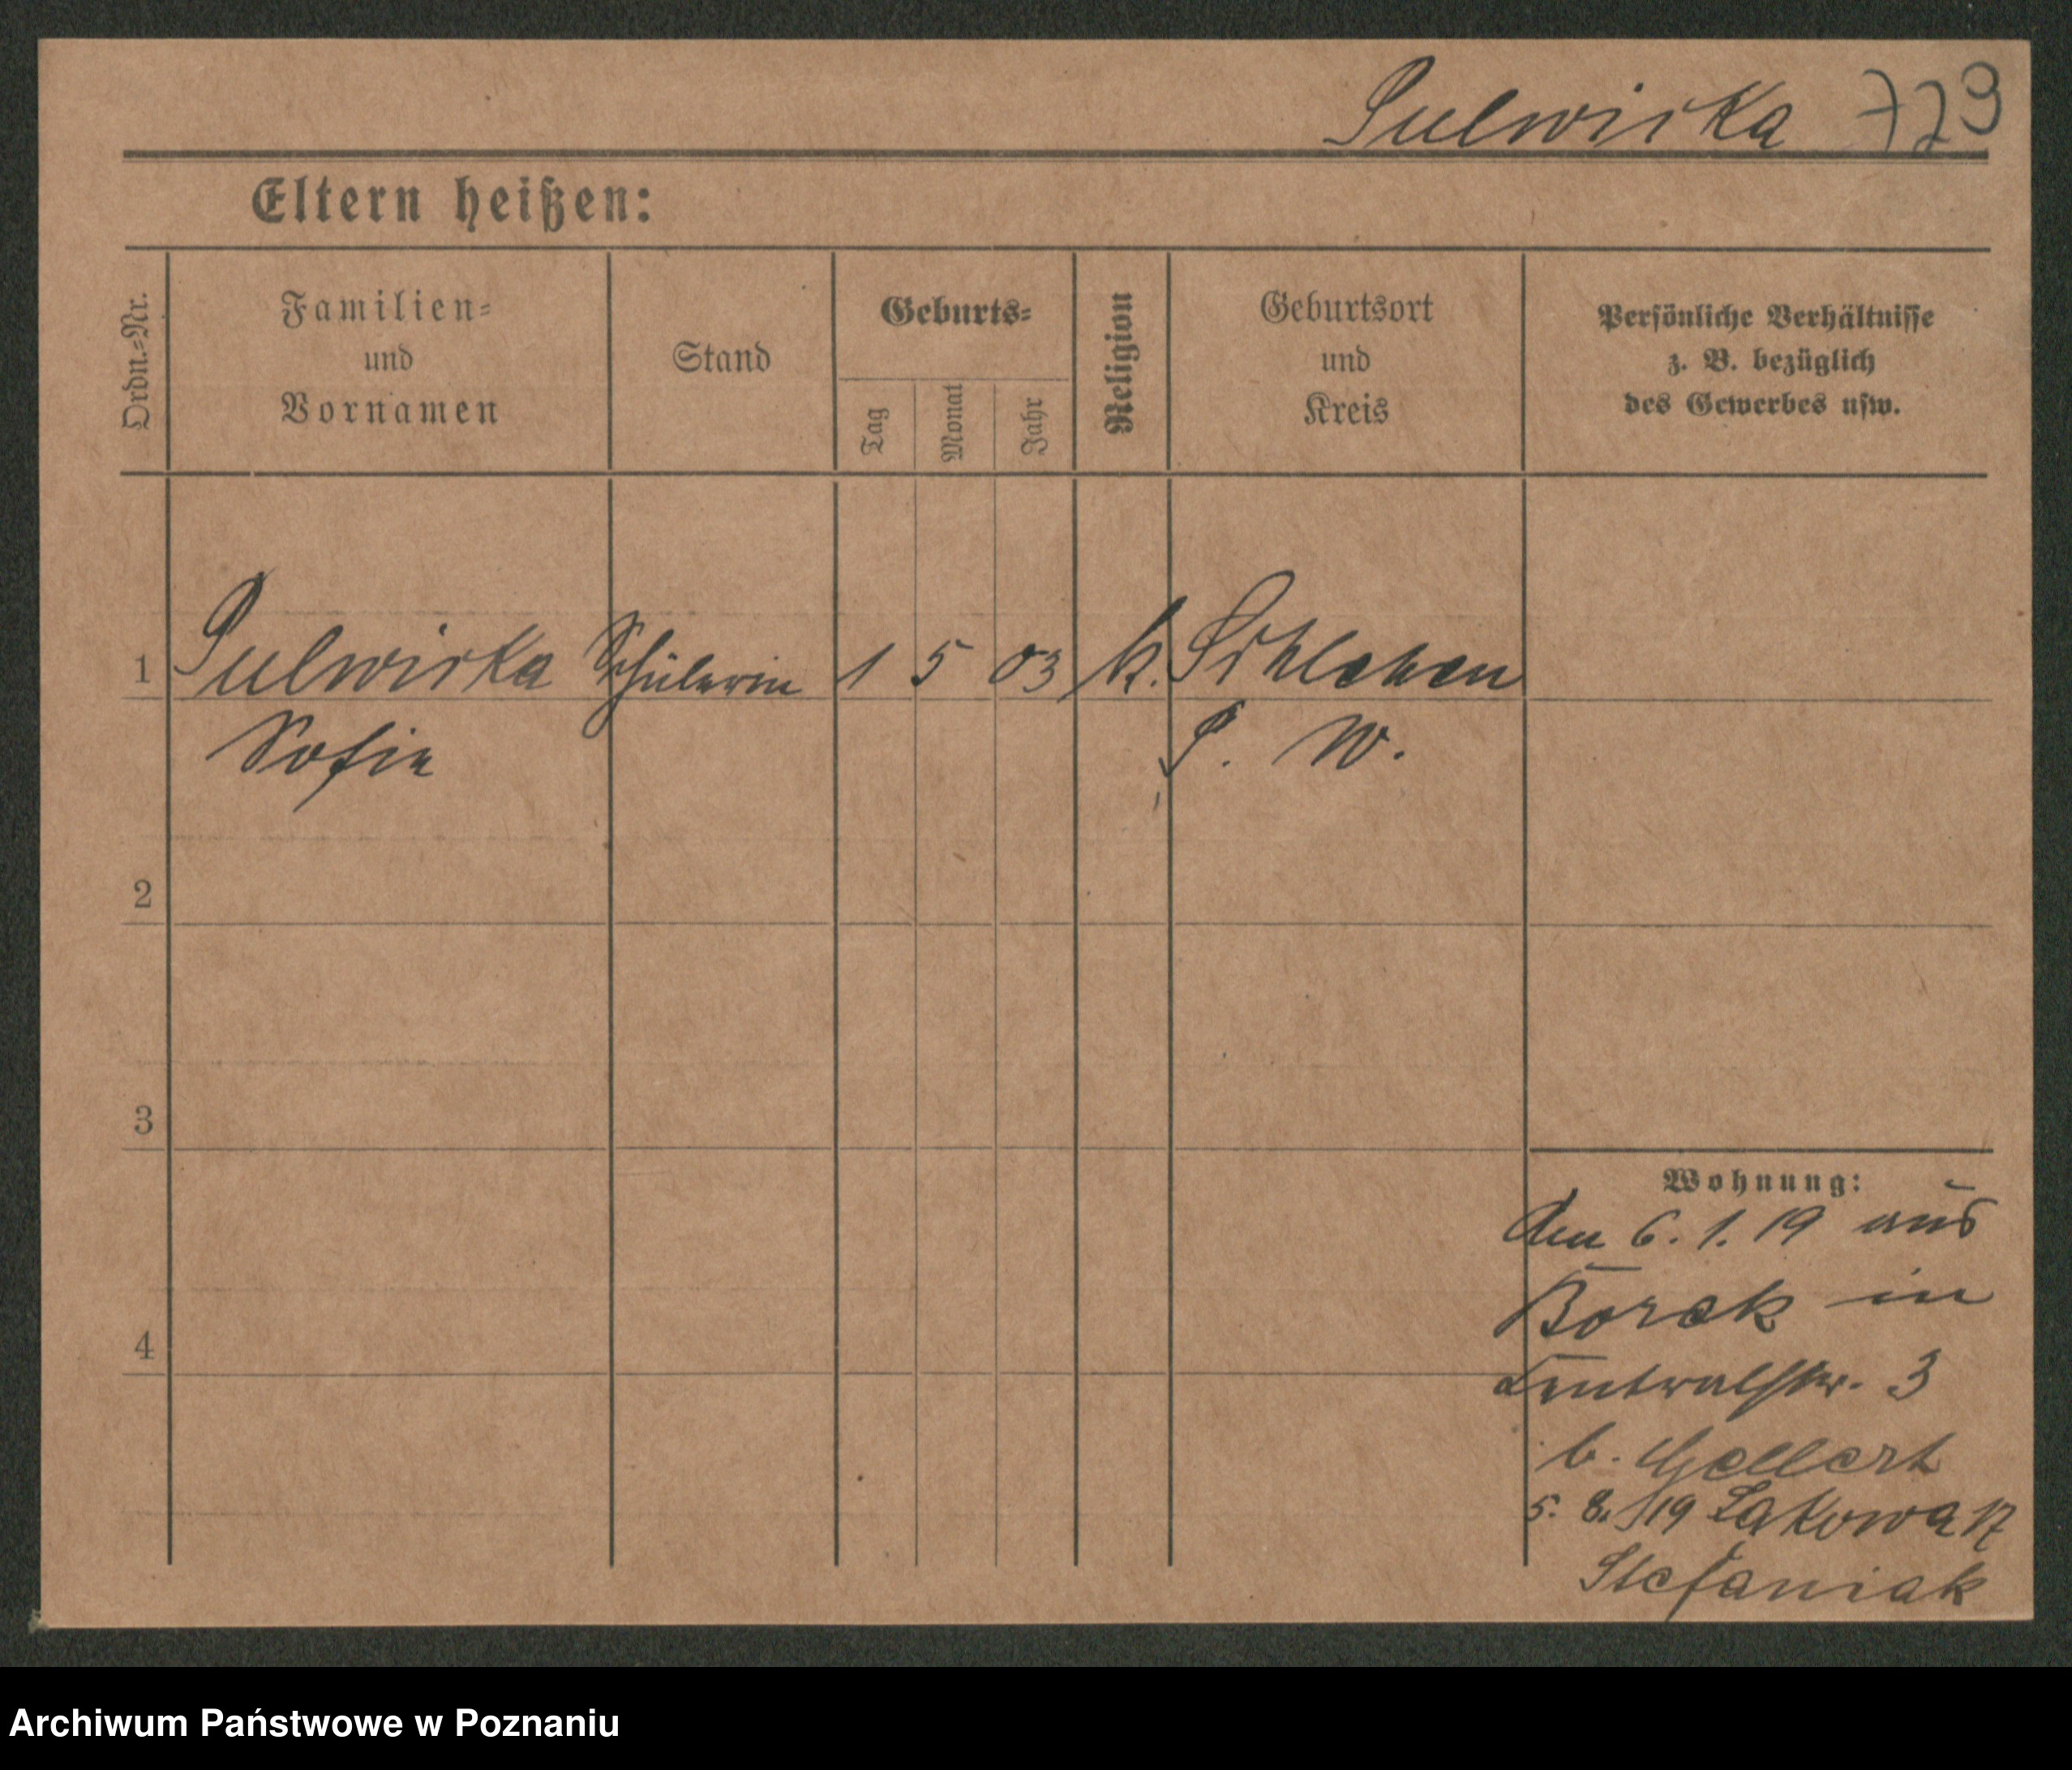 Pulwicka 729
Eltern heißen:
Ordn.-Nr.
Familien-
und
Vornamen
Stand
Geburts-
Tag
Monat
Jahr
Religion
Geburtsort
und
Kreis
Persönliche Verhältnisse
z. B. bezüglich
des Gewerbes usw.
1 Pulwicka Schülerin 1 5 03 k. Schlehen
Sofie P. W.
2
3
4
Wohnung:
den 6. 1. 19 aus
Borek in
Centralstr. 3
b. Gellert
5. 8. 19 Łąkowa 17
Stefaniak
Archiwum Państwowe w Poznaniu